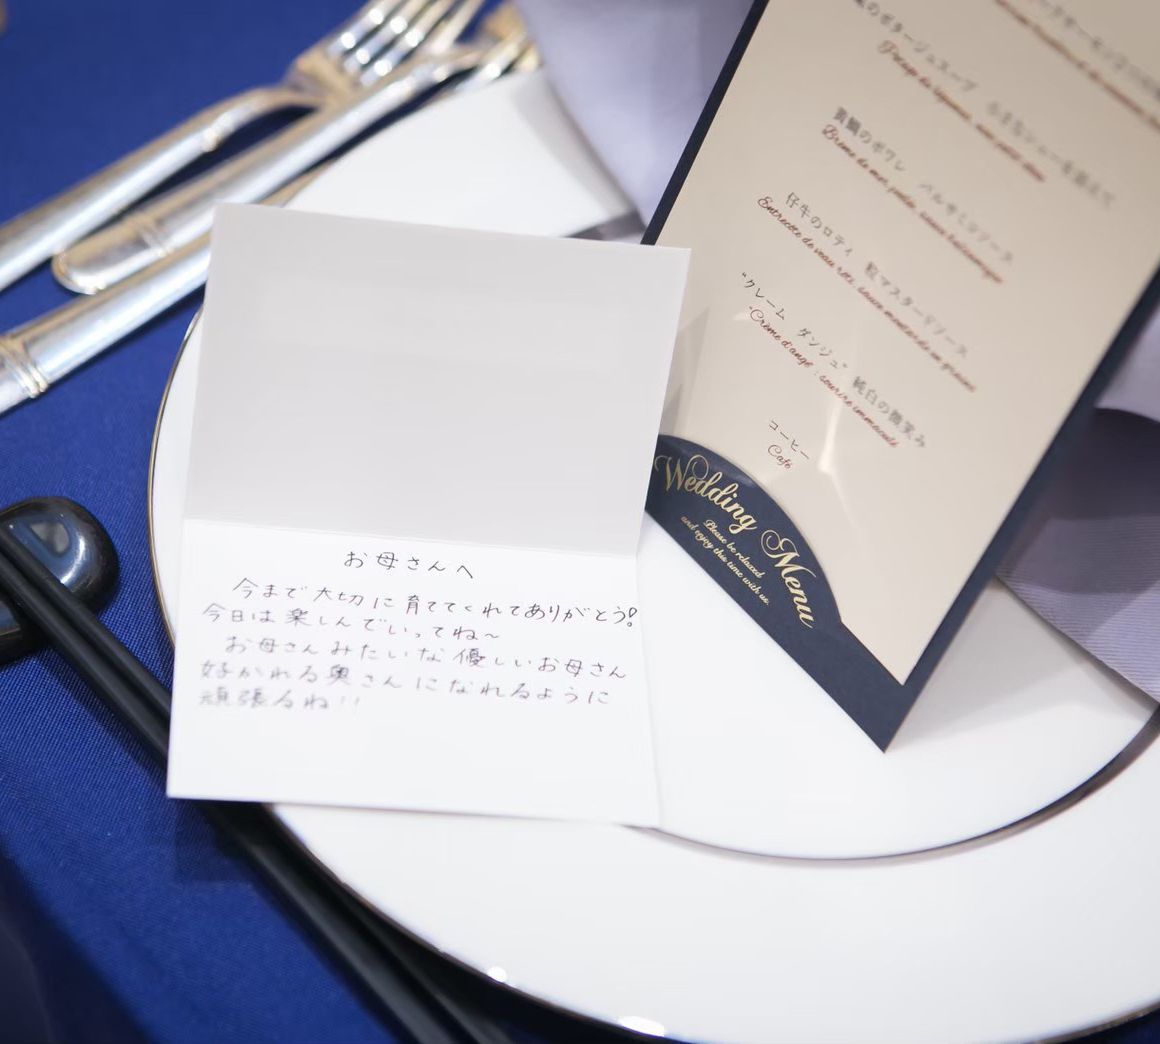 お母さんへ
今まで大切に育ててくれてありがとう!
今日は楽しんでいってね〜
お母さんみたいな優しいお母さん
好かれる奥さんになれるように
頑張るね!!
のポタージュスープ 小さなシューを添えて
真鯛のポワレ バルサミコソース
Brème de mer, poêlée, sauce balsamique
仔牛のロティ 粒マスタードソース
Entrecôte de veau roti, sauce moutarde en graines
"クレーム ダンジュ" 純白の微笑み
"Crème d'ange" : sourire immaculé
コーヒー
Café
Wedding Menu
Please be relaxed
and enjoy this time with us.